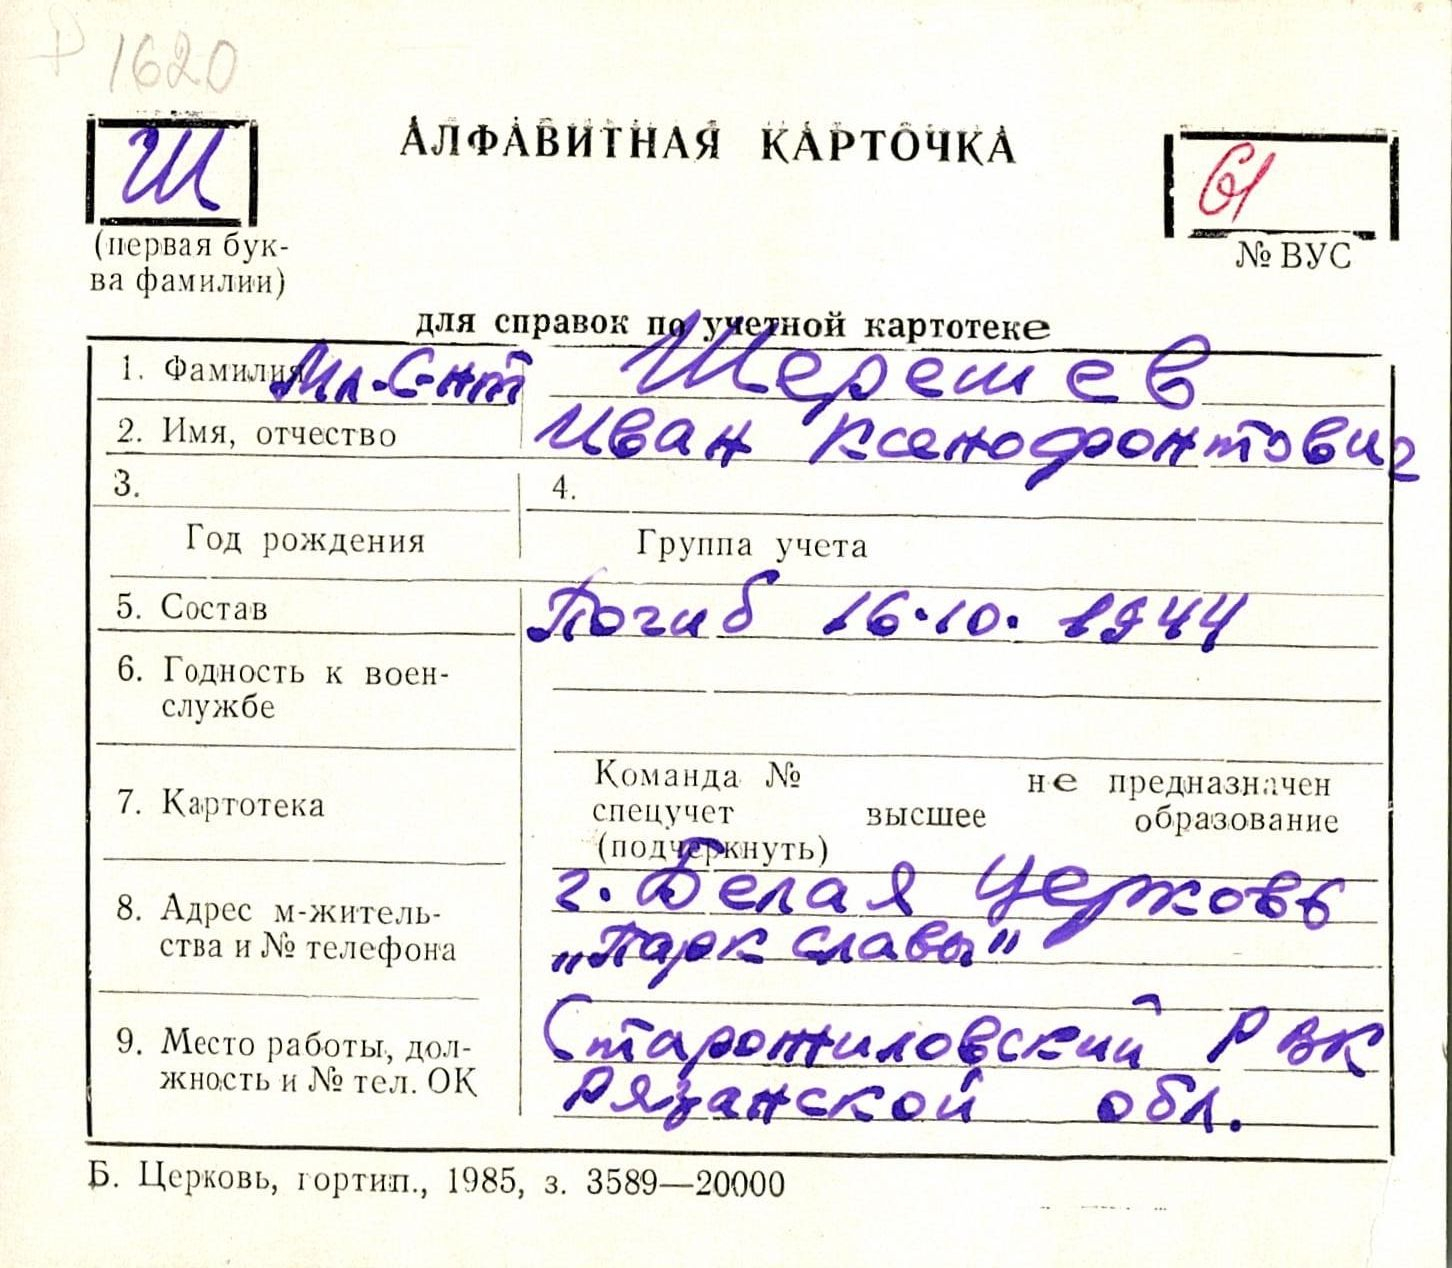 1620
Ш
АЛФАВИТНАЯ КАРТОЧКА
61
(первая бук-
ва фамилии)
№ ВУС
для справок по учетной картотеке
1. Фамилия Мл. С-нт Шерешев
2. Имя, отчество Иван Ксенофонтович
3. 4.
Год рождения Группа учета
5. Состав Погиб 16.10. 1944
6. Годность к воен-
службе
Команда № не предназначен
7. Картотека спецучет высшее образование
(подчеркнуть)
8. Адрес м-житель- г. Белая Церковь
ства и № телефона „Парк славы"
9. Место работы, дол- Старожиловский РВК
жность и № тел. ОК Рязанской обл.
Б. Церковь, гортип., 1985, з. 3589—20000